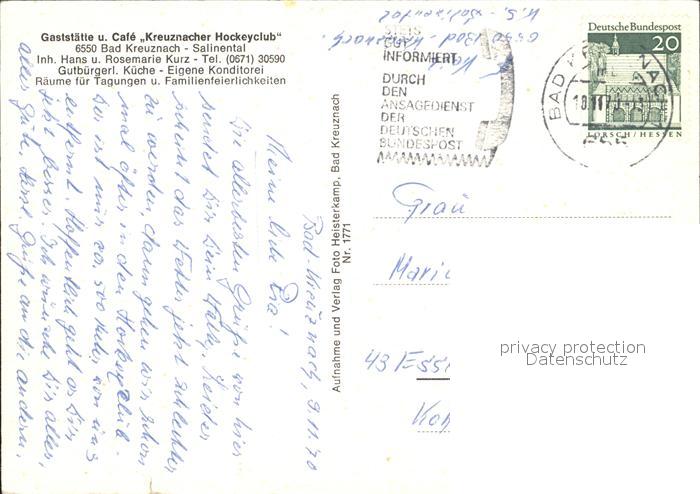 Gaststätte u. Café „Kreuznacher Hockeyclub"
6550 Bad Kreuznach - Salinental
Inh. Hans u. Rosemarie Kurz - Tel. (0671) 30590
Gutbürgerl. Küche - Eigene Konditorei
Räume für Tagungen u. Familienfeierlichkeiten
6550 Bad
STETS
GUT
INFORMIERT
DURCH
DEN
ANSAGEDIENST
DER
DEUTSCHEN
BUNDESPOST
BAD KREUZNACH
Deutsche Bundespost
20
LORSCH/HESSEN
Aufnahme und Verlag Foto Heisterkamp, Bad Kreuznach
Nr. 1771
Bad-Kreuznach, 9.11.70
Meine liebe
die allerbesten Grüße von hier
sendet Dir Dein Leider
scheint das Wetter jetzt schlechter
zu werden, dann gehen wir schon
mal öfter in den Hockeyclub.
der ist nur ca. 500 Meter von uns
entfernt. Hoffentlich geht es Dir
jetzt besser. Ich wünsche Dir alles,
alles Gute, Grüße an die andern.
Frau
43 Ess
privacy protection
Datenschutz